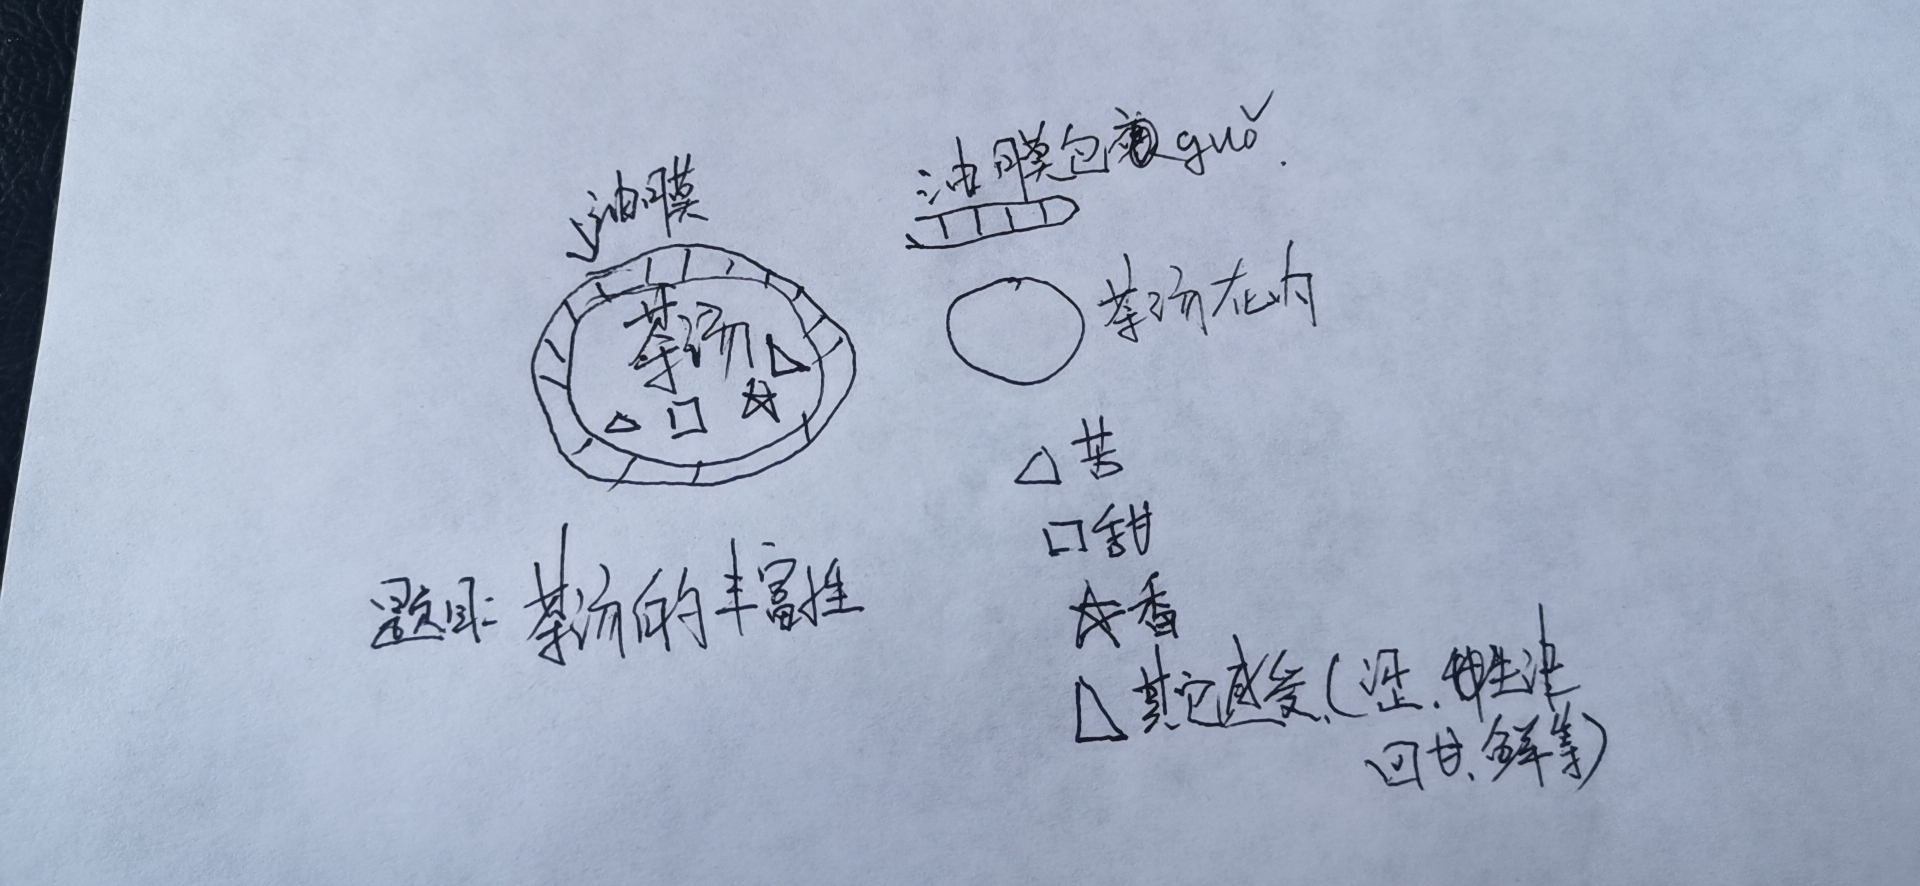 油膜
茶汤
油膜包裹guǒ.
茶汤在内
苦
甜
香
其它感受(涩、生津
回甘、鲜等)
题目:茶汤的丰富性